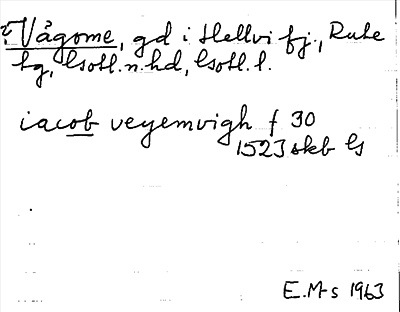 ?Vågome, gd i Hellvi fj., Rute
tg, Gotl.n.hd, Gotl.l.
iacob veyemvigh f 30
1523 skb G
E.M-s 1963